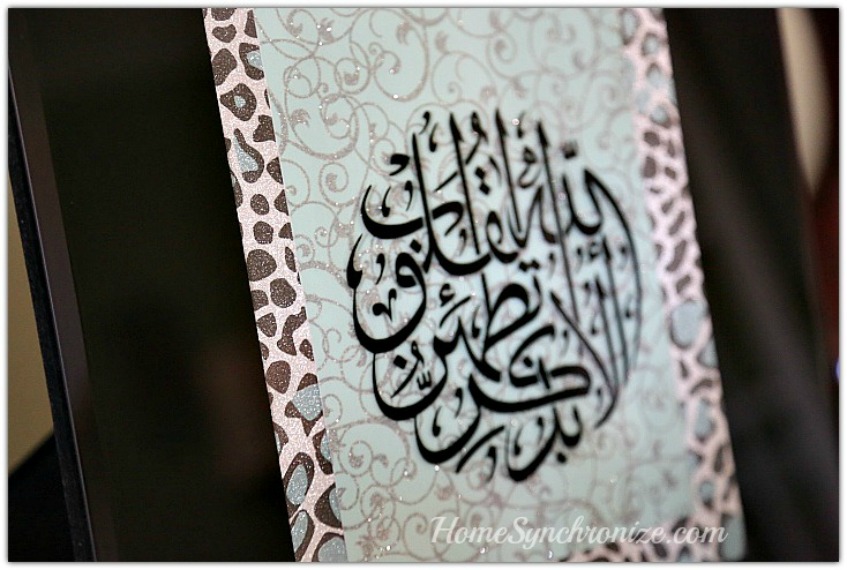 ألا بذكر الله تطمئن القلوب
HomeSynchronize.com